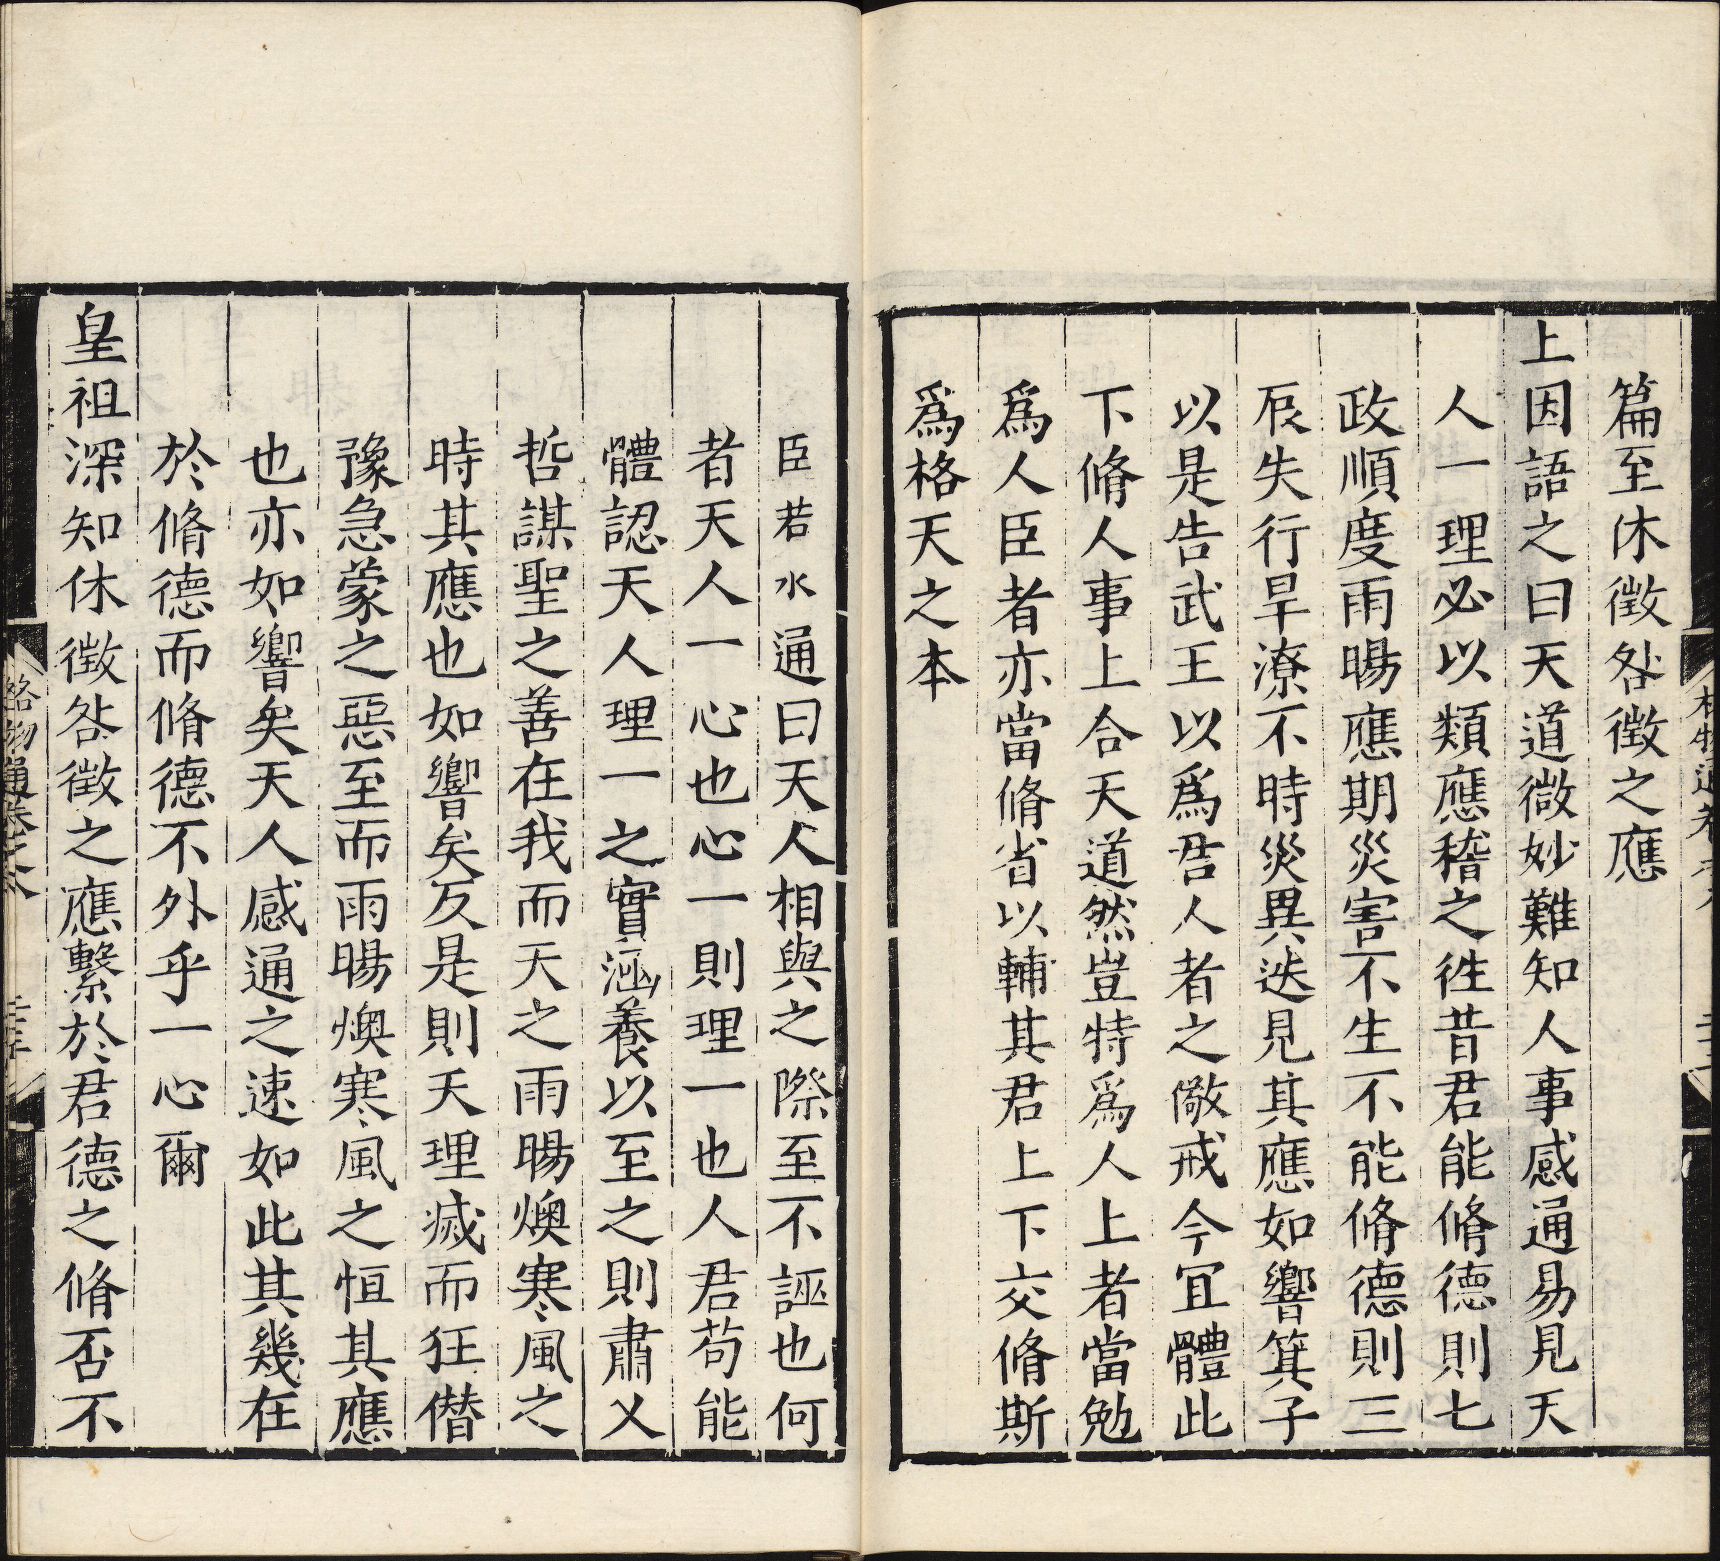 篇至休徵咎徵之應
上因語之曰天道微妙難知人事感通易見天
人一理必以類應稽之徃昔君能脩德則七
政順度雨暘應期災害不生不能脩德則三
辰失行旱潦不時災異迭見其應如響箕子
以是告武王以爲君人者之儆戒今宜體此
下脩人事上合天道然豈特爲人上者當勉
爲人臣者亦當脩省以輔其君上下交脩斯
爲格天之本
臣若水通曰天人相與之際至不誣也何
者天人一心也心一則理一也人君苟能
體認天人理一之實涵養以至之則肅乂
哲謀聖之善在我而天之雨暘燠寒風之
時其應也如響矣反是則天理滅而狂僭
豫急蒙之惡至而雨暘燠寒風之恒其應
也亦如響矣天人感通之速如此其幾在
於脩德而脩德不外乎一心爾
皇祖深知休徵咎徵之應繫於君德之脩否不
格物通卷之六